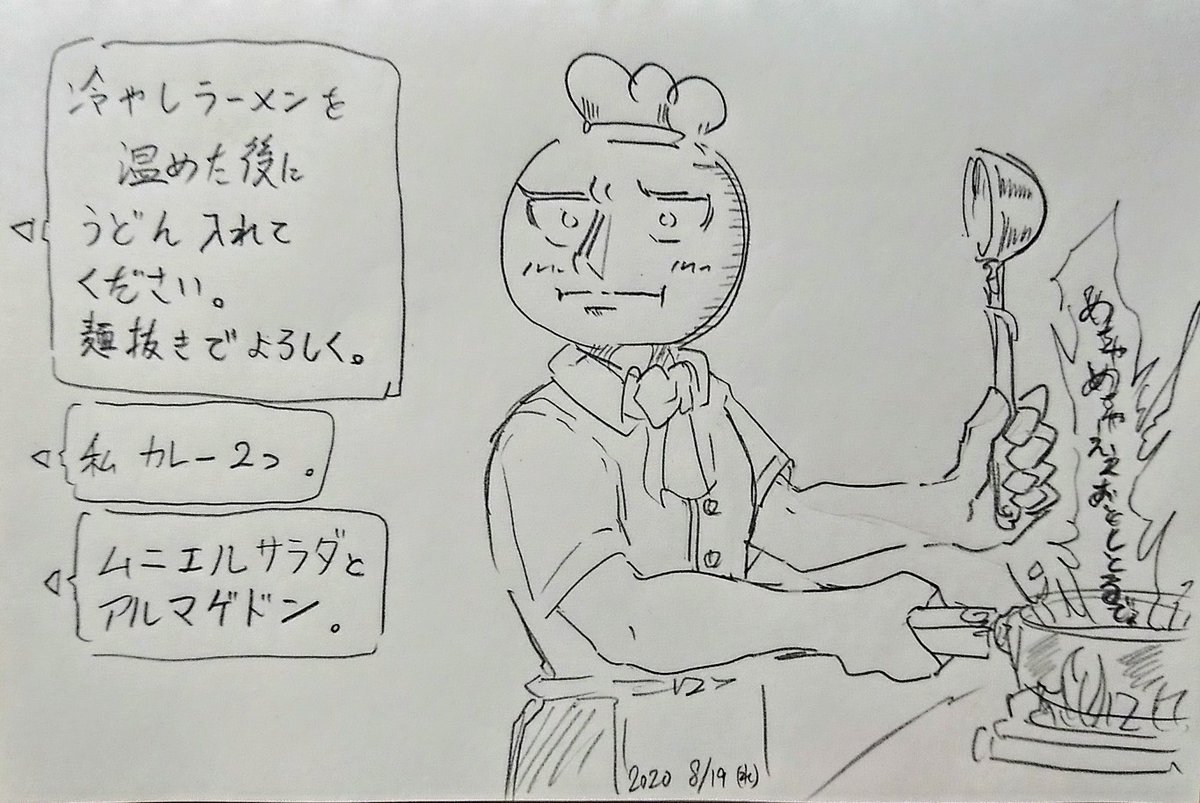 冷やしラーメンを
温めた後に
うどん入れて
ください。
麺抜きでよろしく。
私 カレー2つ。
ムニエルサラダと
アルマゲドン。
めちゃめちゃええおとしとるで
2020 8/19 (水)